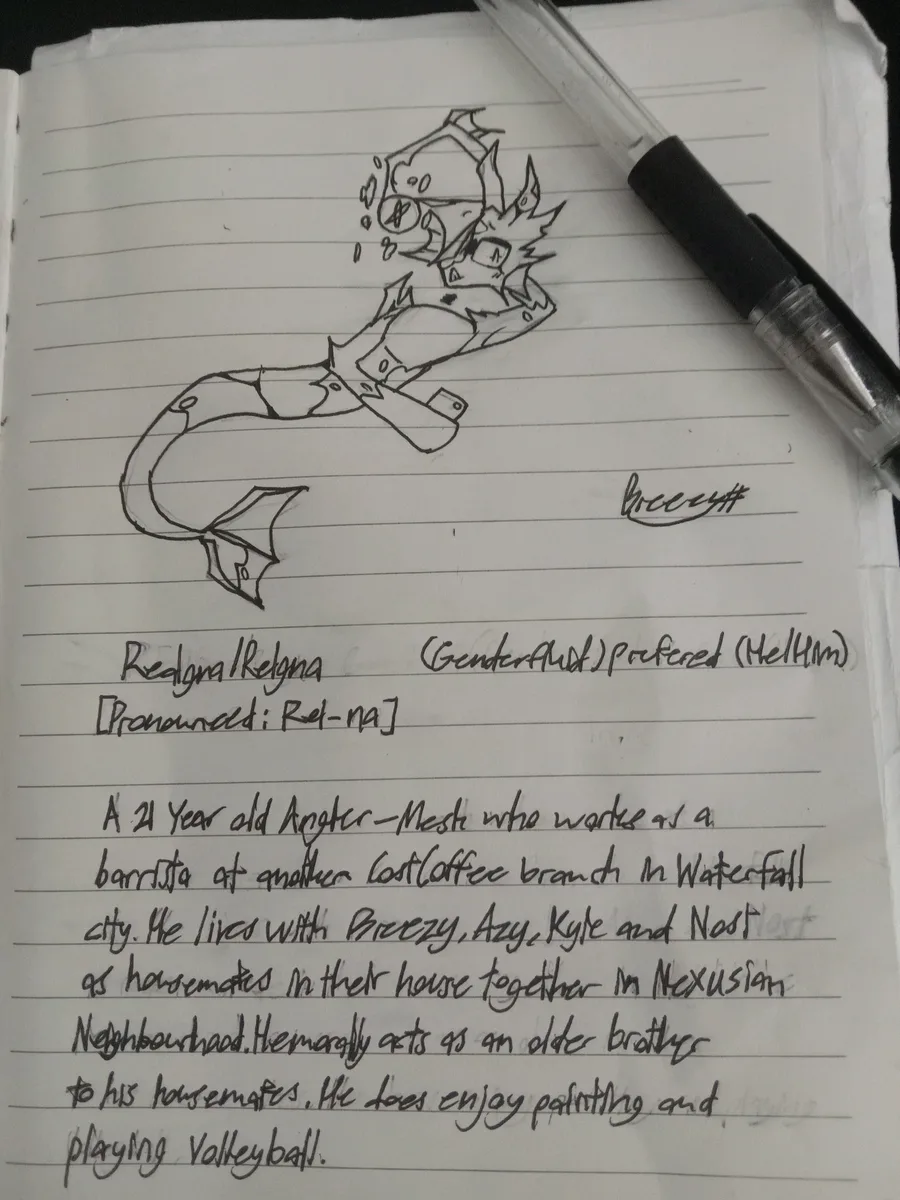 Breezy#
Realgna/Relgna (Genderfluid) prefered (He/Him)
[Pronounced: Rel-na]
A 21 Year old Angler-Mesh who works as a
barrista at another CostCoffee branch in Waterfall
city. He lives with Breezy, Azy, Kyle and Nost
as housemates in their house together in Nexusian
Neighbourhood. He morally acts as an older brother
to his housemates. He does enjoy painting and
playing Volleyball.